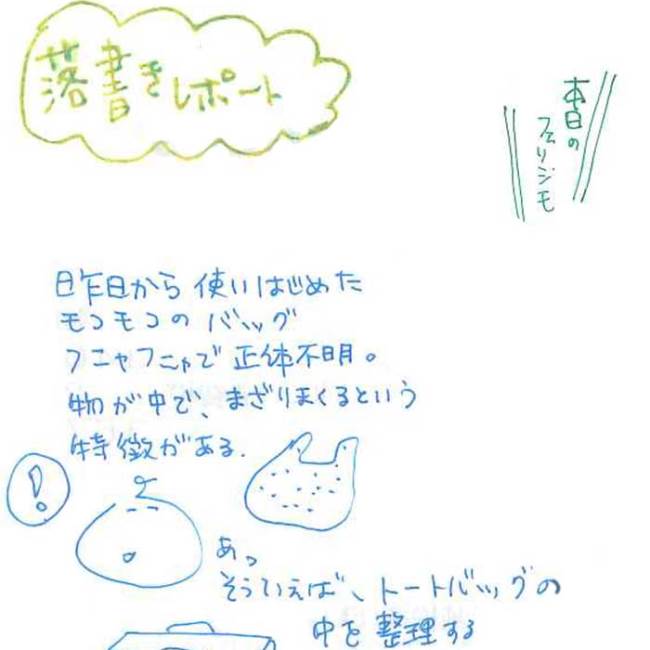 落書きレポート
本日の
フェリジモ
昨日から使いはじめた
モコモコのバッグ
フニャフニャで正体不明。
物が中で、まざりまくるという
特徴がある.
!
あっ
そういえば、トートバッグの
中を整理する